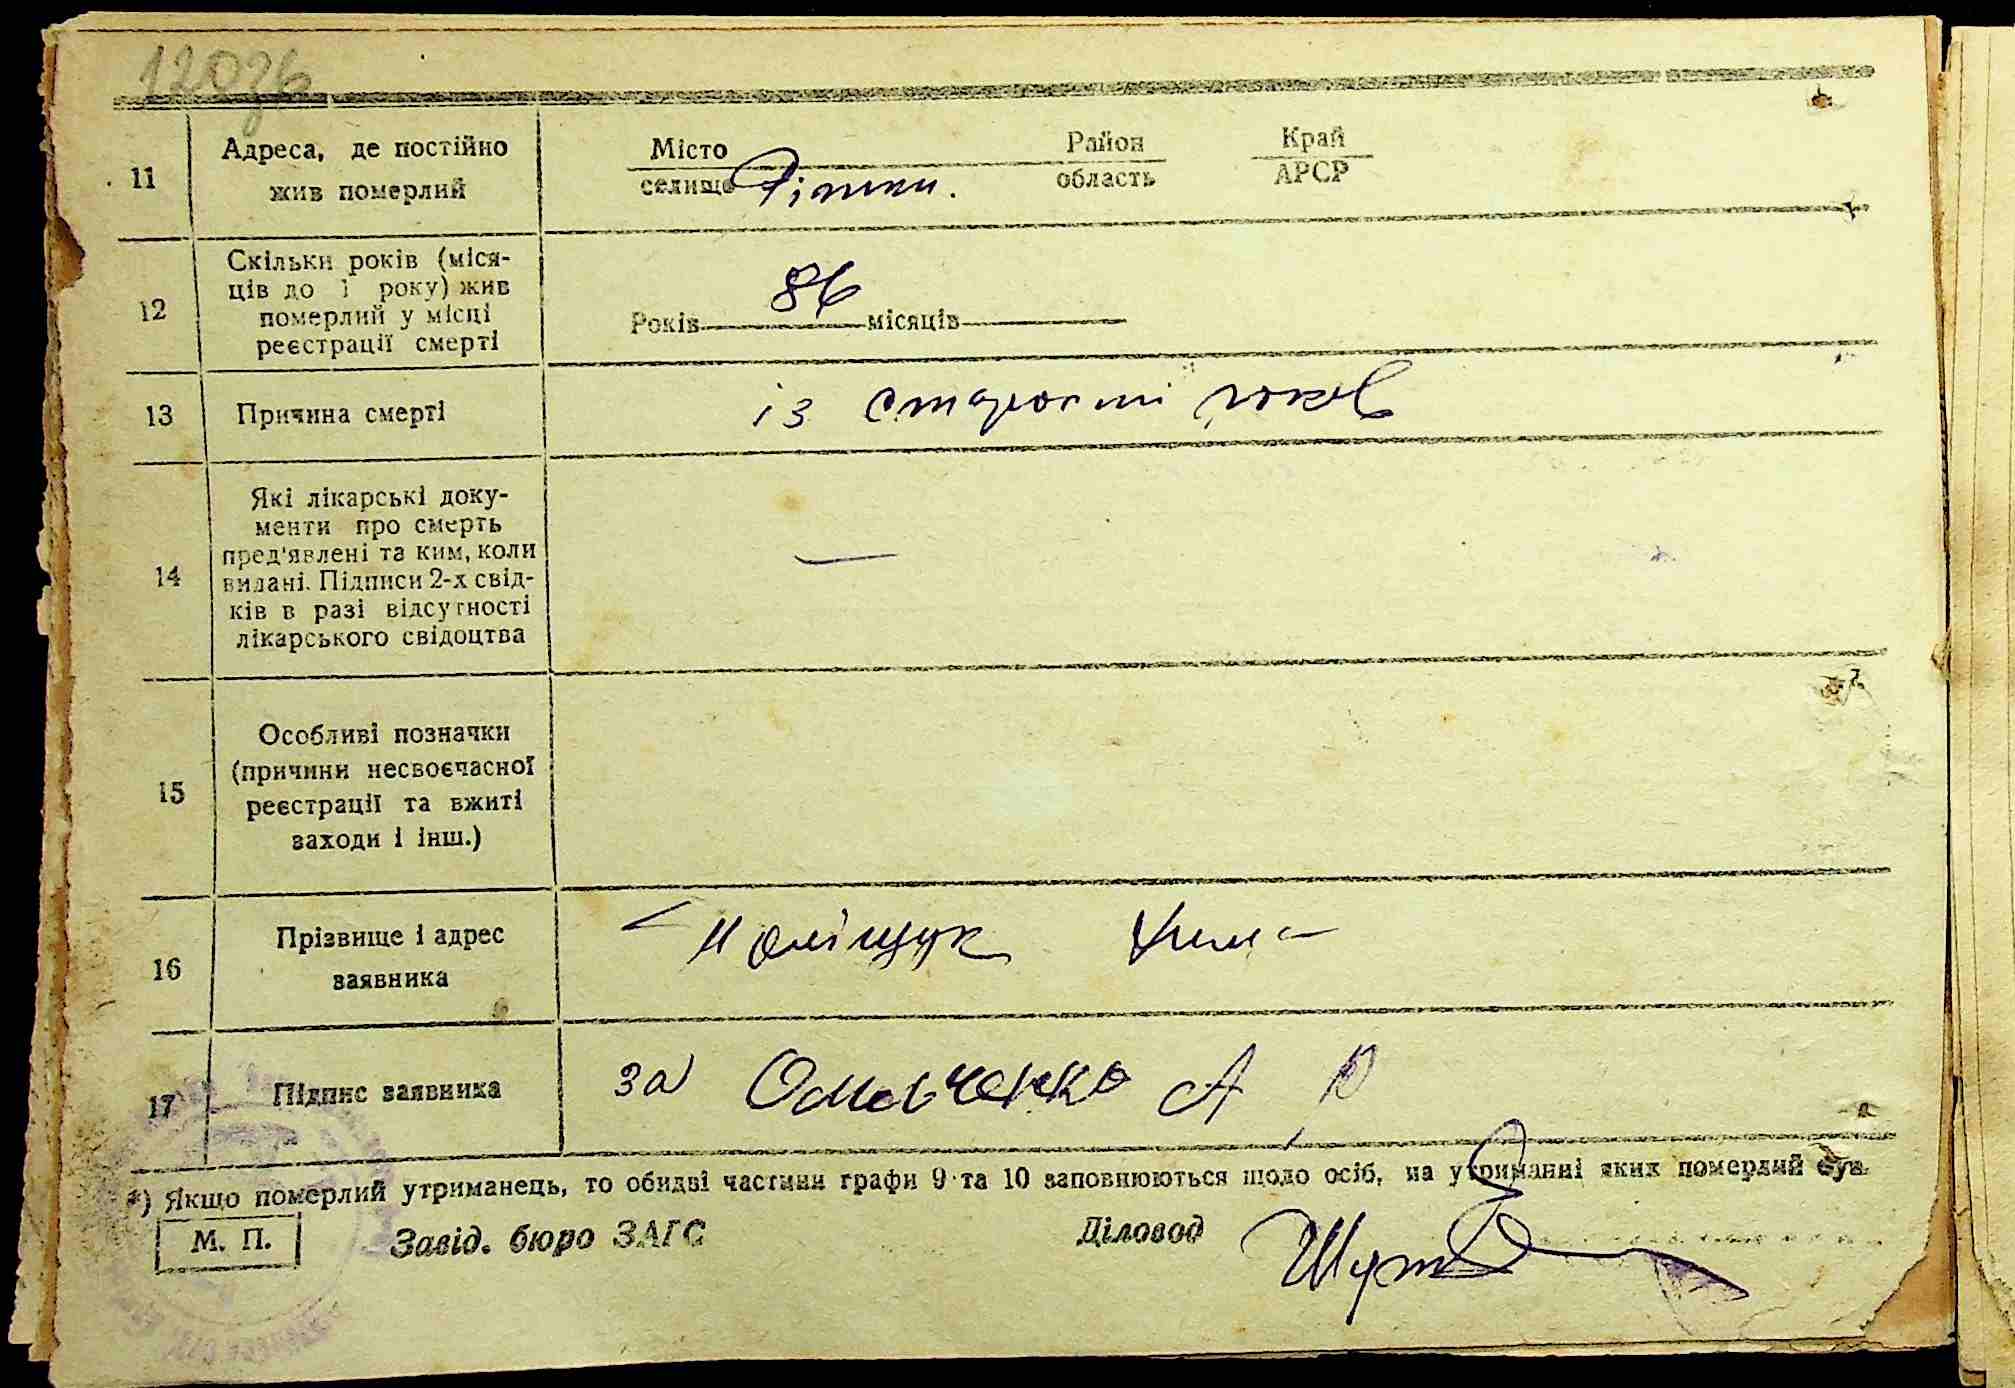 11
Адреса, де постійно
жив померлий
Місто
селище
Район
область
Край
АРСР
12
Скільки років (міся-
ців до 1 року) жив
померлий у місці
реєстрації смерті
Років 86 місяців
13
Причина смерті
із старости років
14
Які лікарські доку-
менти про смерть
пред'явлені та ким, коли
видані. Підписи 2-х свід-
ків в разі відсутності
лікарського свідоцтва
—
15
Особливі позначки
(причини несвоєчасної
реєстрації та вжиті
заходи і інш.)
16
Прізвище і адрес
заявника
Поліщук
17
Підпис заявника
за Омельченко А
*) Якщо померлий утриманець, то обидві частини графи 9 та 10 заповнюються щодо осіб, на утриманні яких померлий був.
М. П.
Завід. бюро ЗАГС
Діловод